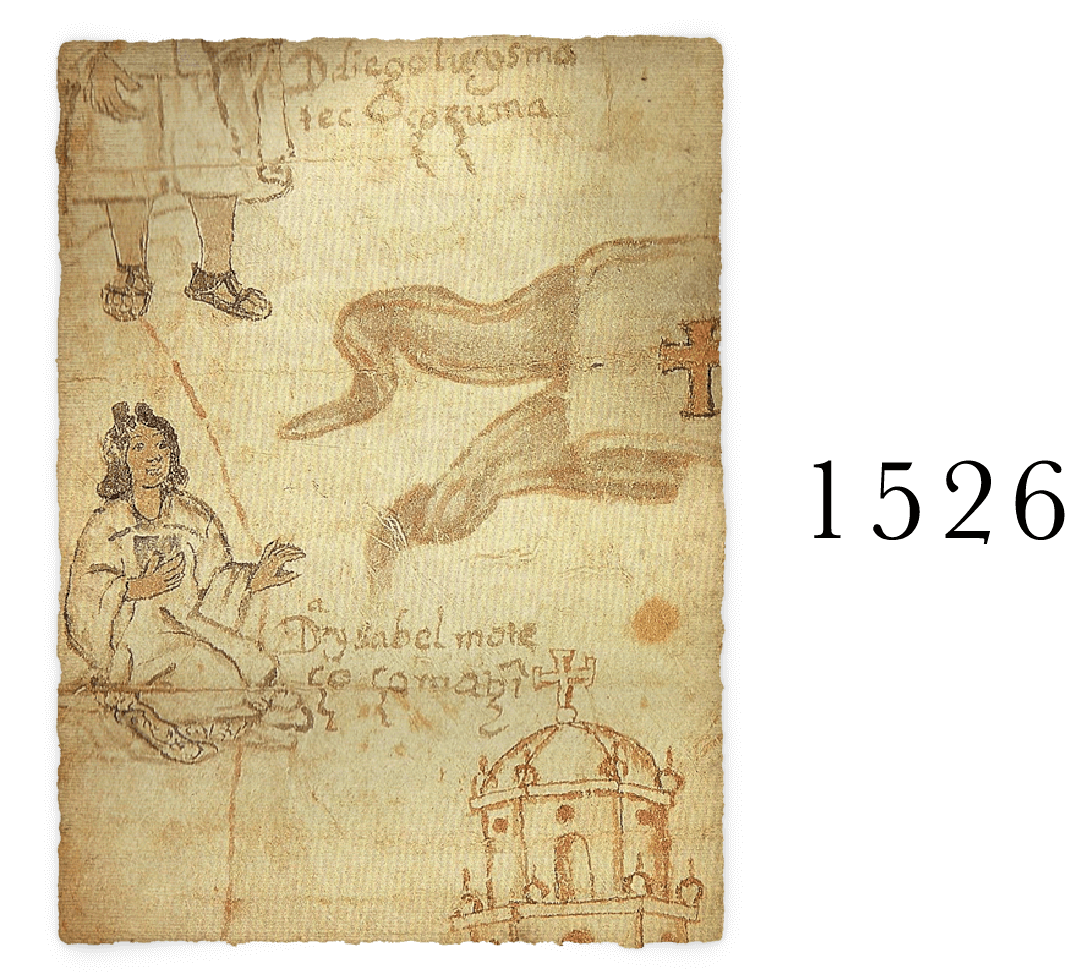 D diego luysmo
tec Çoçuma
a
Dn ysabel mote
co çoma
1526